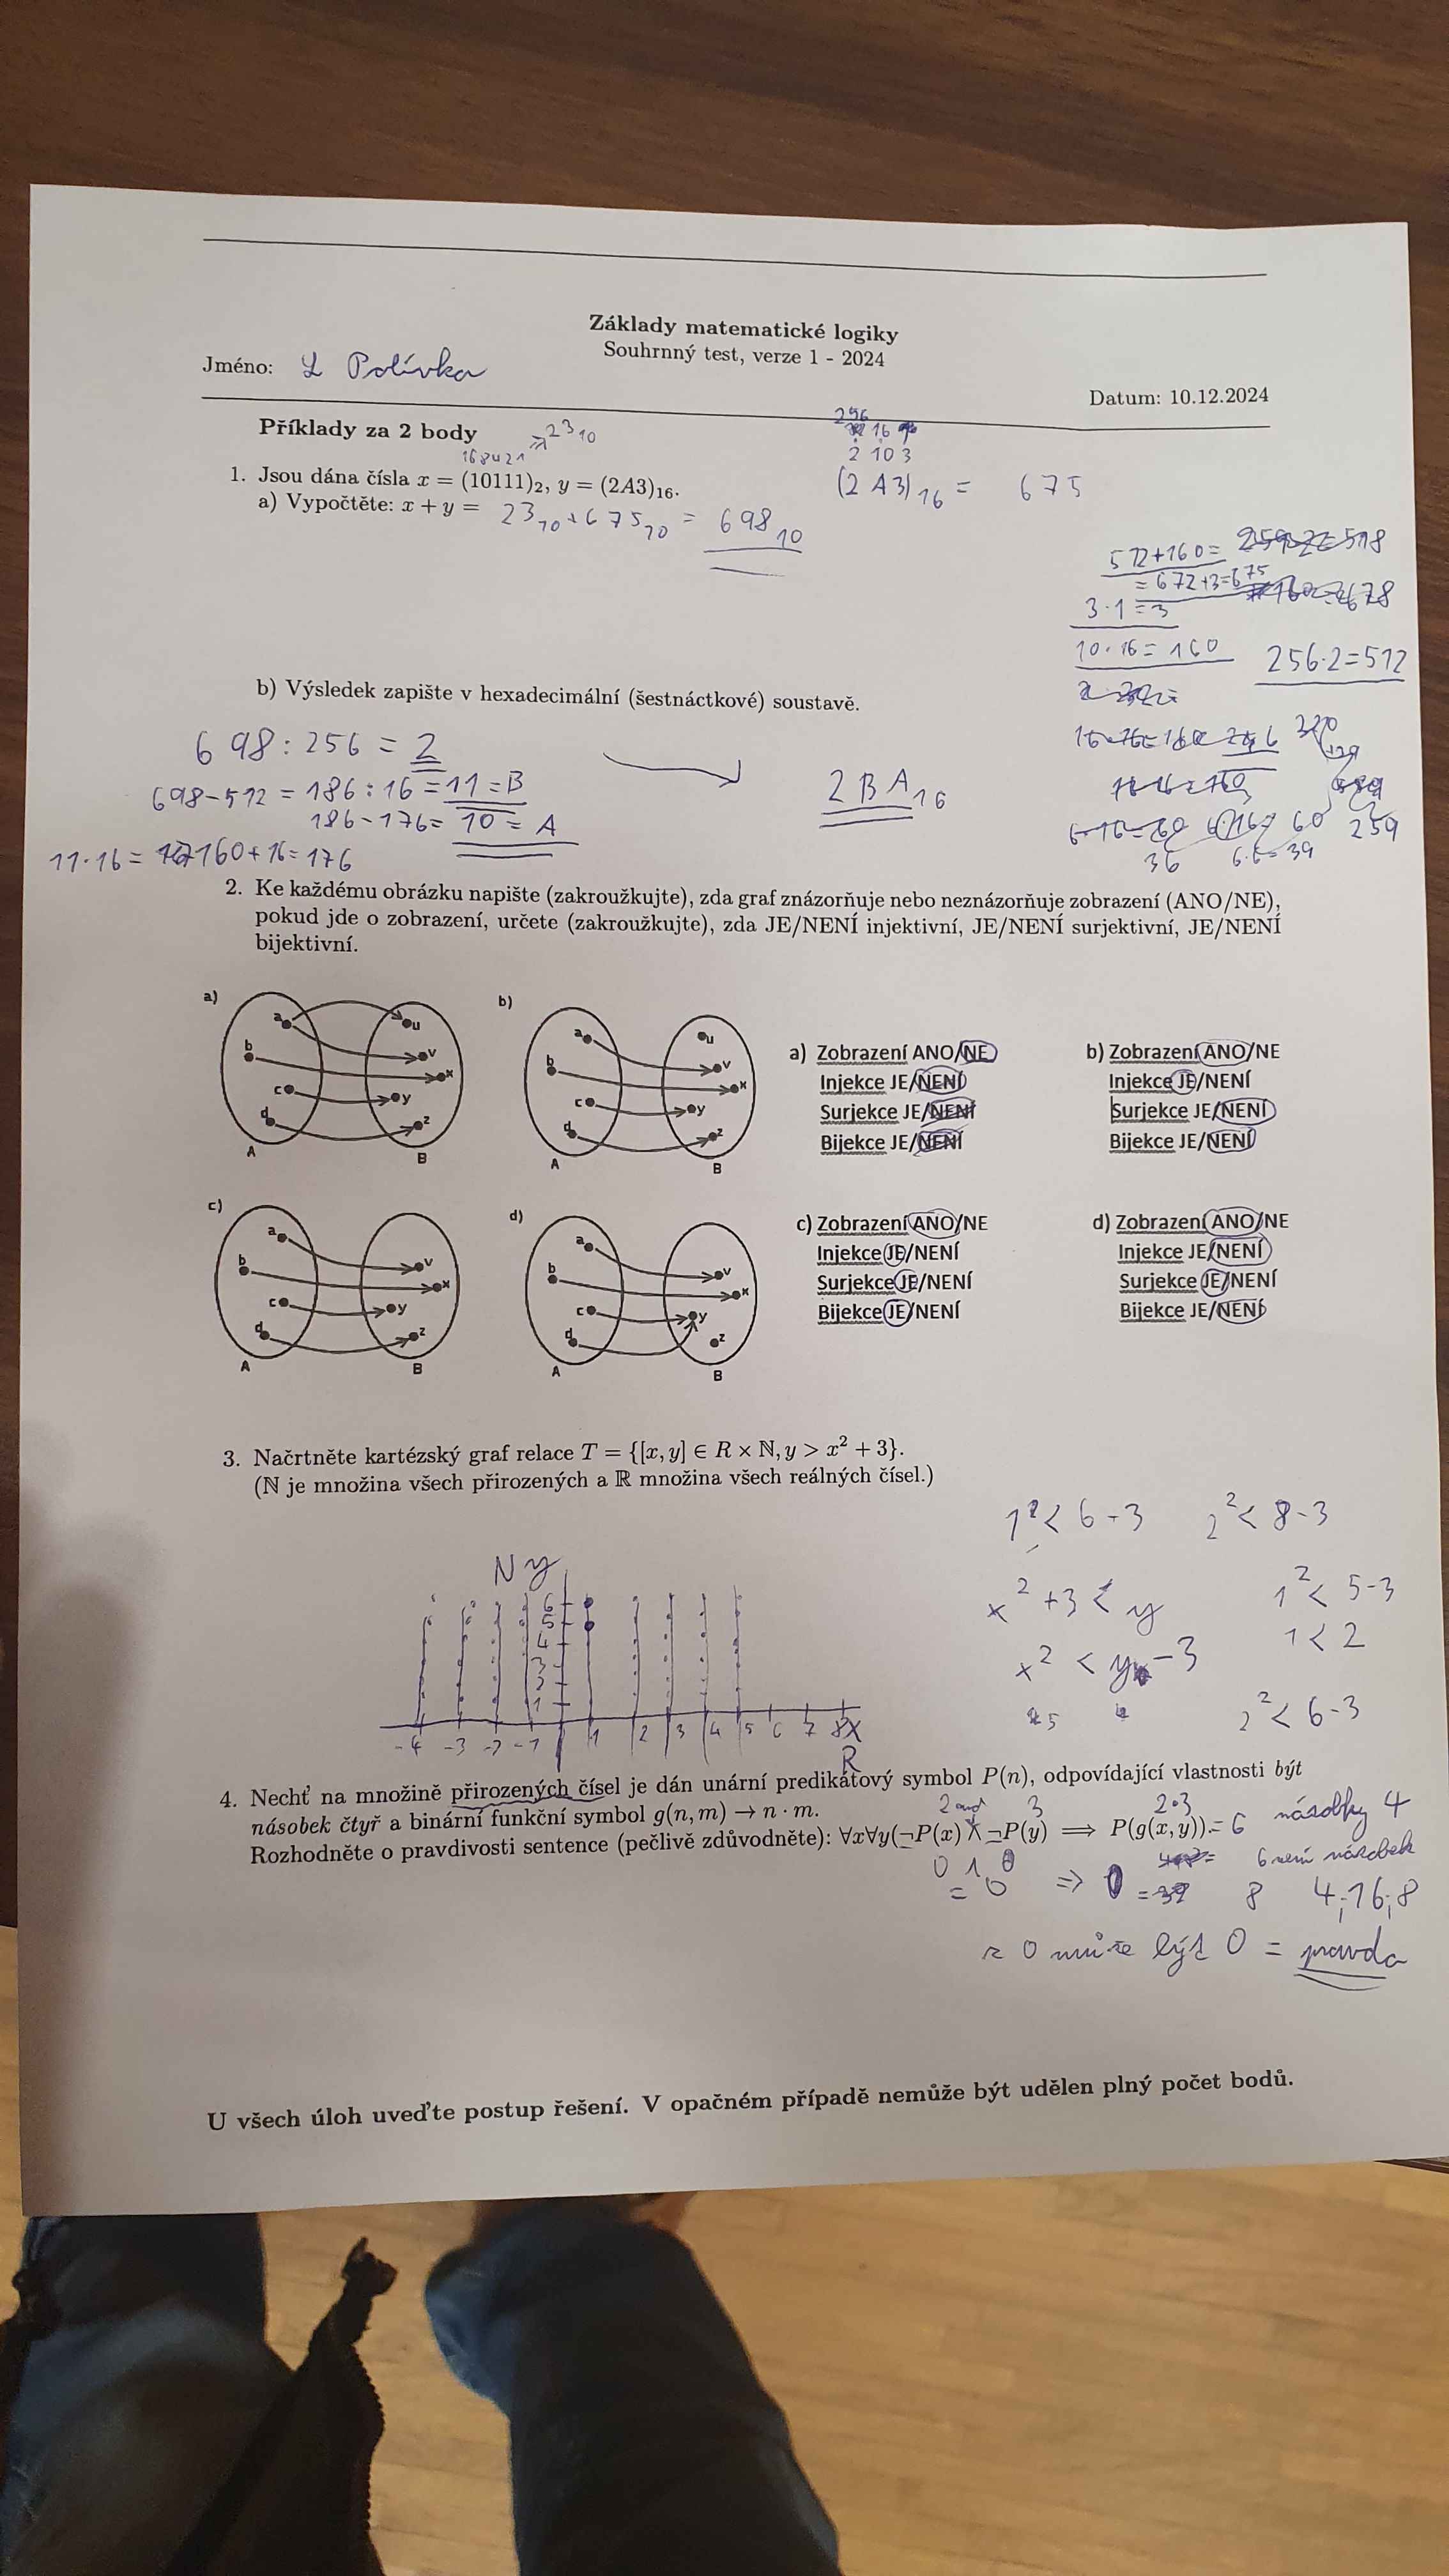 Základy matematické logiky
Souhrnný test, verze 1 - 2024
Jméno: L Polívka
Datum: 10.12.2024
Příklady za 2 body
23₁₀
16 8 4 2 1
256 16
2 10 3
1. Jsou dána čísla x = (10111)₂, y = (2A3)₁₆.
(2A3)₁₆ = 675
a) Vypočtěte: x + y = 23₁₀ + 675₁₀ = 698₁₀
512+160=
= 672+3=675
3·1=3
10·16=160
256·2=512
b) Výsledek zapište v hexadecimální (šestnáctkové) soustavě.
698:256 = 2
698-512 = 186:16 = 11 = B
186-176= 10 = A
11·16 = 160+16=176
2BA₁₆
259
36 6·6=39
2. Ke každému obrázku napište (zakroužkujte), zda graf znázorňuje nebo neznázorňuje zobrazení (ANO/NE),
pokud jde o zobrazení, určete (zakroužkujte), zda JE/NENÍ injektivní, JE/NENÍ surjektivní, JE/NENÍ
bijektivní.
a)
a b c d
u v x y z
A B
b)
a b c d
u v x y z
A B
a) Zobrazení ANO/NE
Injekce JE/NENÍ
Surjekce JE/NENÍ
Bijekce JE/NENÍ
b) Zobrazení ANO/NE
Injekce JE/NENÍ
Surjekce JE/NENÍ
Bijekce JE/NENÍ
c)
a b c d
v x y z
A B
d)
a b c d
v x y z
A B
c) Zobrazení ANO/NE
Injekce JE/NENÍ
Surjekce JE/NENÍ
Bijekce JE/NENÍ
d) Zobrazení ANO/NE
Injekce JE/NENÍ
Surjekce JE/NENÍ
Bijekce JE/NENÍ
3. Načrtněte kartézský graf relace T = {[x, y] ∈ R × ℕ, y > x² + 3}.
(ℕ je množina všech přirozených a ℝ množina všech reálných čísel.)
1² < 6-3
2² < 8-3
x² + 3 < y
1² < 5-3
1 < 2
x² < y - 3
2² < 6-3
N y
6
5
4
3
2
1
-4 -3 -2 -1 1 2 3 4 5 6 7 8 X
R
4. Nechť na množině přirozených čísel je dán unární predikátový symbol P(n), odpovídající vlastnosti být
násobek čtyř a binární funkční symbol g(n, m) → n · m.
2 and 3 2·3
Rozhodněte o pravdivosti sentence (pečlivě zdůvodněte): ∀x∀y(¬P(x) ∧ ¬P(y) ⟹ P(g(x, y)).
= 6 násobky 4
6 není násobek
0 1 0
= 0 => 0
8 4,16,8
z 0 může být 0 = pravda
U všech úloh uveďte postup řešení. V opačném případě nemůže být udělen plný počet bodů.